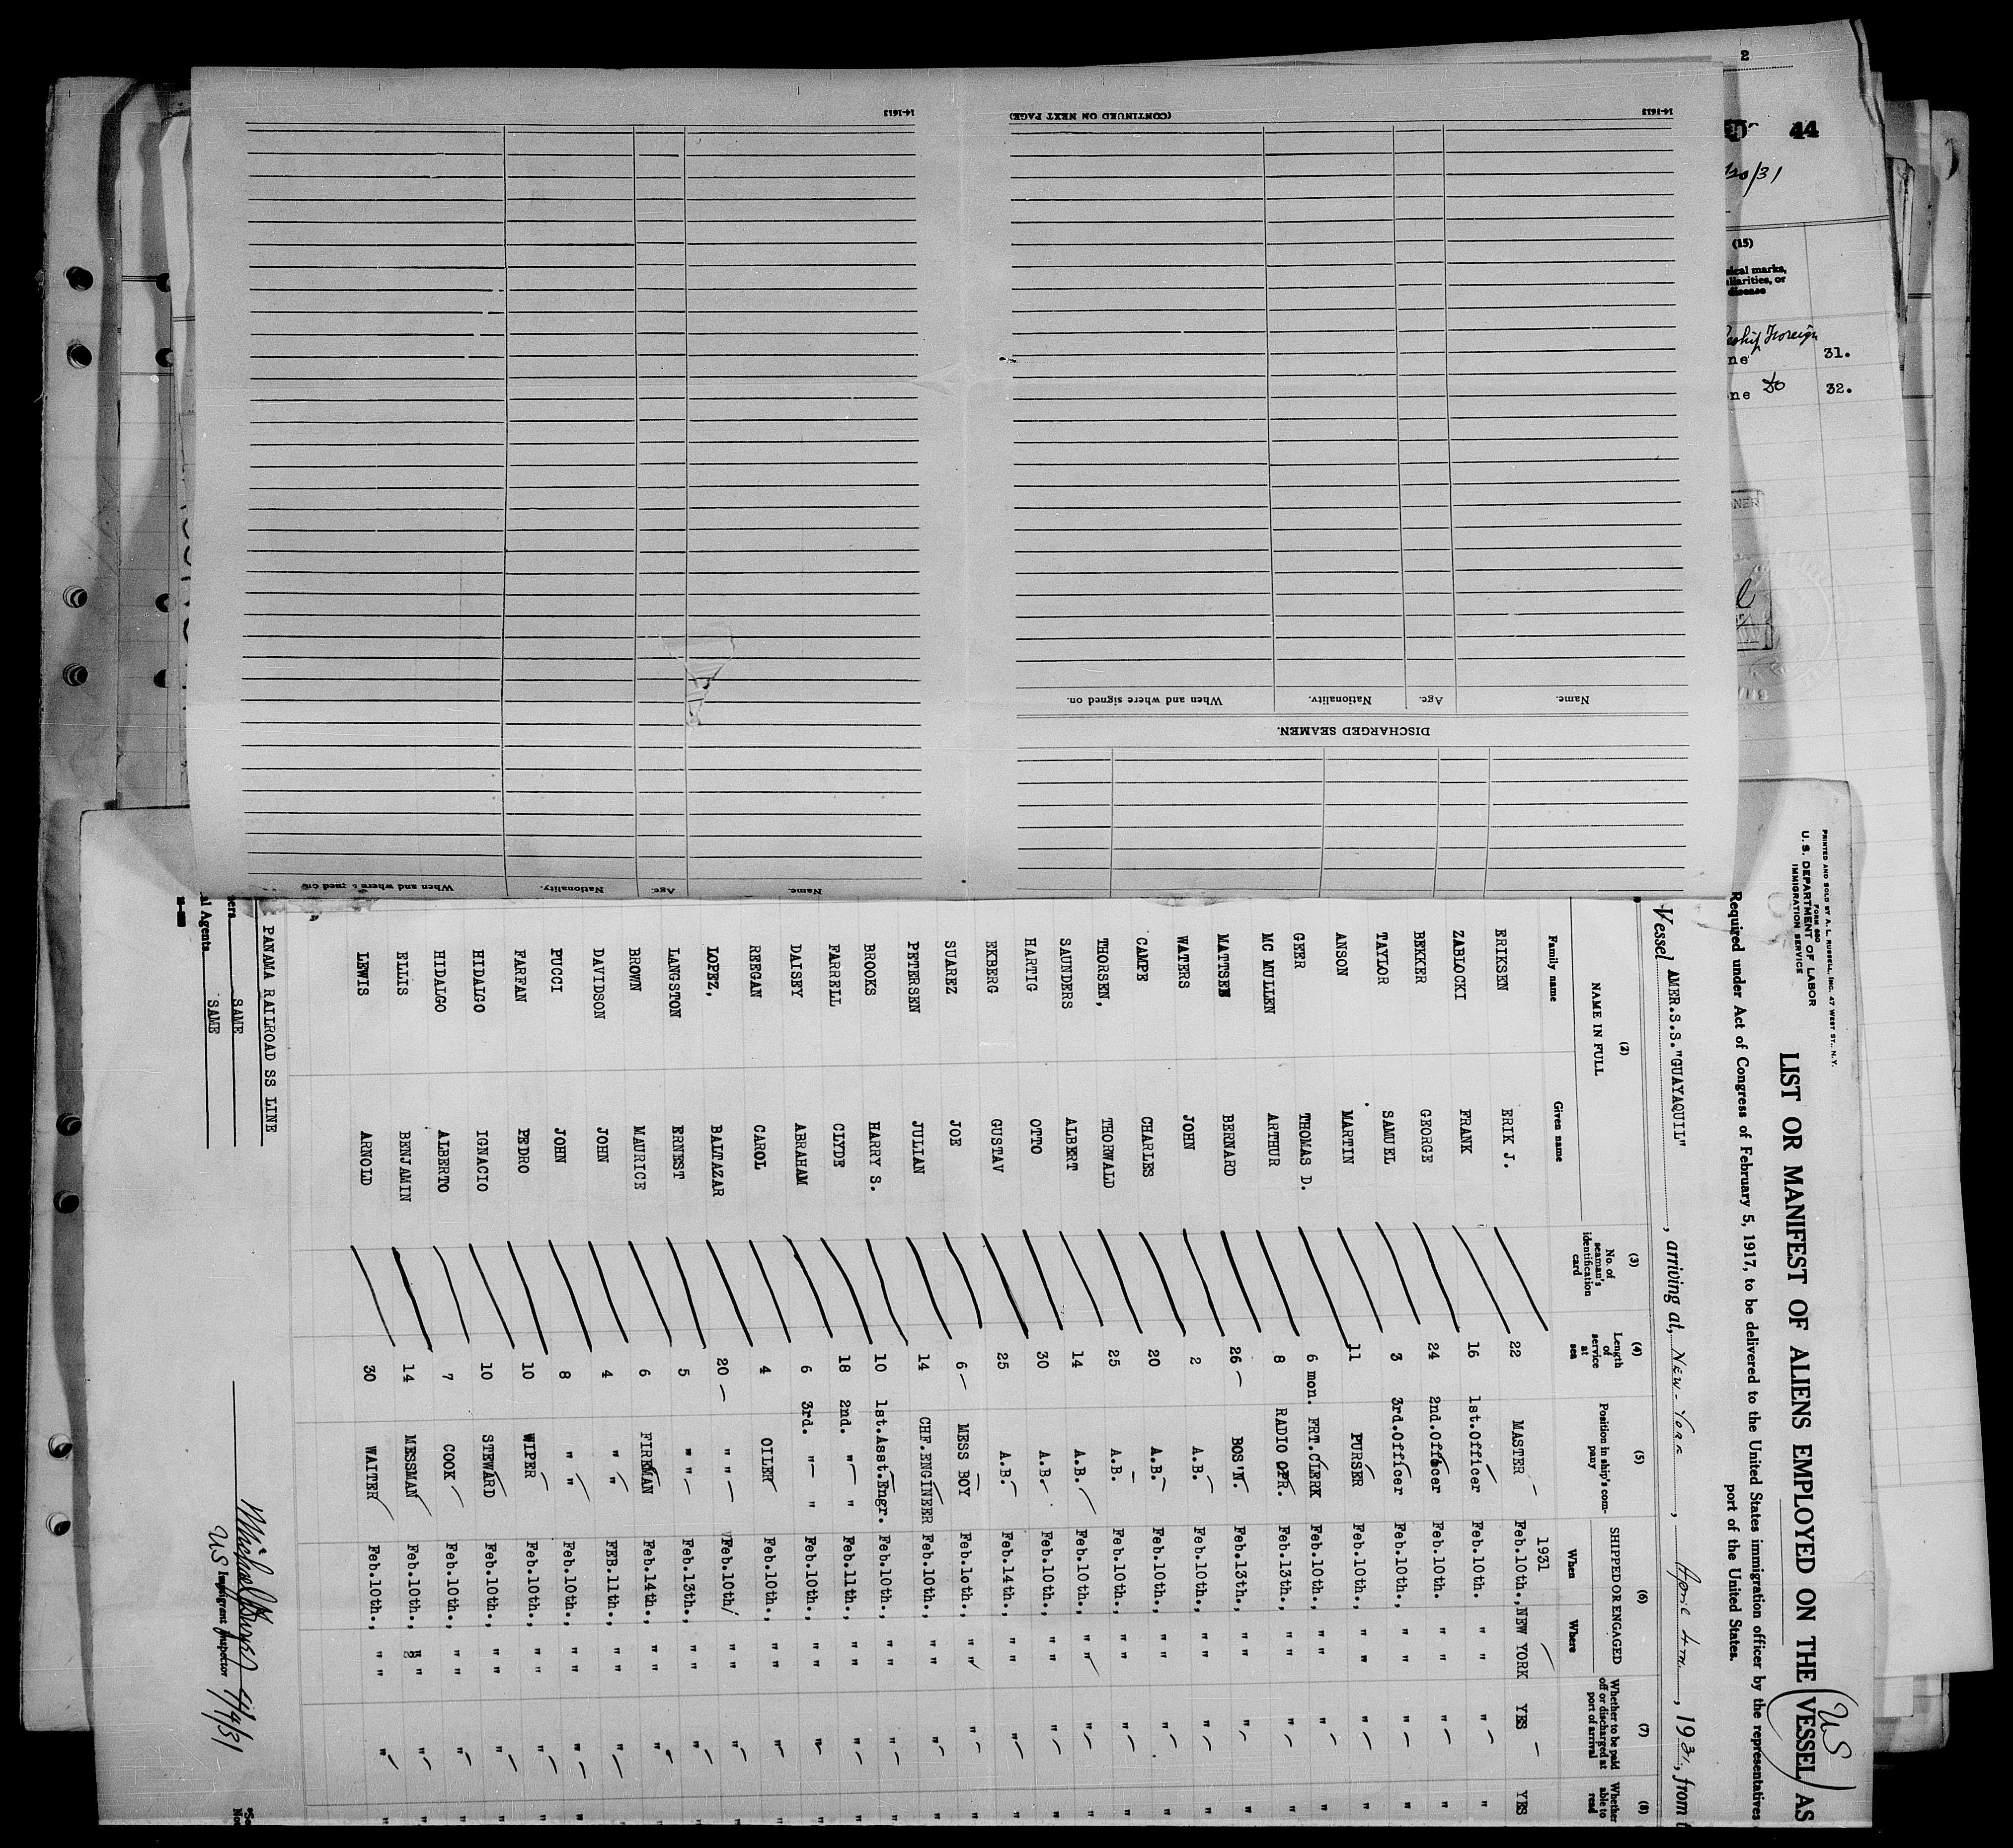 PRINTED AND SOLD BY A. L. RUSSELL, INC. 47 WEST ST., N.Y.
FORM 680
U. S. DEPARTMENT OF LABOR
IMMIGRATION SERVICE
US
LIST OR MANIFEST OF ALIENS EMPLOYED ON THE VESSEL AS
Required under Act of Congress of February 5, 1917, to be delivered to the United States immigration officer by the representatives
port of the United States.
Vessel AMER.S.S."GUAYAQUIL", arriving at, NEW-YORK, April 4TH, 1931, from
(2) (3) (4) (5) (6) (7) (8)
NAME IN FULL No. of seaman's identification card Length of service at sea Position in ship's company SHIPPED OR ENGAGED Whether to be paid off or discharged at port of arrival Whether able to read
Family name Given name When Where
1931
ERIKSEN ERIK J. 22 MASTER Feb.10th., NEW YORK YES YES
ZABLOCKI FRANK 16 1st.Officer Feb.10th. " " " "
BEKKER GEORGE 24 2nd.Officer Feb.10th. " " " "
TAYLOR SAMUEL 3 3rd.Officer Feb.10th., " " " "
ANSON MARTIN 11 PURSER Feb.10th., " " " "
GEER THOMAS D. 6 mon. FRT.CLERK Feb.10th., " " " "
MC MULLEN ARTHUR 8 RADIO OPR. Feb.13th., " " " "
MATTSEN BERNARD 26 BOS'N. Feb.13th., " " " "
WATERS JOHN 2 A.B. Feb.10th., " " " "
CAMPE CHARLES 20 A.B. Feb.10th., " " " "
THORSEN, THORWALD 25 A.B. Feb.10th., " " " "
SAUNDERS ALBERT 14 A.B. Feb.10th., " " " "
HARTIG OTTO 30 A.B. Feb.10th., " " " "
EKBERG GUSTAV 25 A.B. Feb.14th., " " " "
SUAREZ JOE 6 MESS BOY Feb.10th., " " " "
PETERSEN JULIAN 14 CHF.ENGINEER Feb.10th., " " " "
BROOKS HARRY S. 10 1st.Asst.Engr. Feb.10th., " " " "
FARRELL CLYDE 18 2nd. " " Feb.11th., " " " "
DAISEY ABRAHAM 6 3rd. " " Feb.10th., " " " "
REEGAN CAROL 4 OILER Feb.10th., " " " "
LOPEZ, BALTAZAR 20 " " Feb.10th/ " " " "
LANGSTON ERNEST 5 " " Feb.13th., " " " "
BROWN MAURICE 6 FIREMAN Feb.14th., " " " "
DAVIDSON JOHN 4 " " FEB.11th., " " " "
PUCCI JOHN 8 " " Feb.10th., " " " "
FARFAN PEDRO 10 WIPER Feb.10th., " " " "
HIDALGO IGNACIO 10 STEWARD Feb.10th., " " " "
HIDALGO ALBERTO 7 COOK Feb.10th., " " " "
ELLIS BENJAMIN 14 MESSMAN Feb.10th., " " " "
LEWIS ARNOLD 30 WAITER Feb.10th., " " " "
PANAMA RAILROAD SS LINE
SAME
al Agents SAME
4/4/31
US Immigrant Inspector
DISCHARGED SEAMEN.
Name. Age. Nationality. When and where signed on.
14-1613
(CONTINUED ON NEXT PAGE)
Name. Age. Nationality. When and where signed on.
14-1613
2
44
/31
(15)
sical marks,
disease
Foreign
ne 31.
ne Do 32.